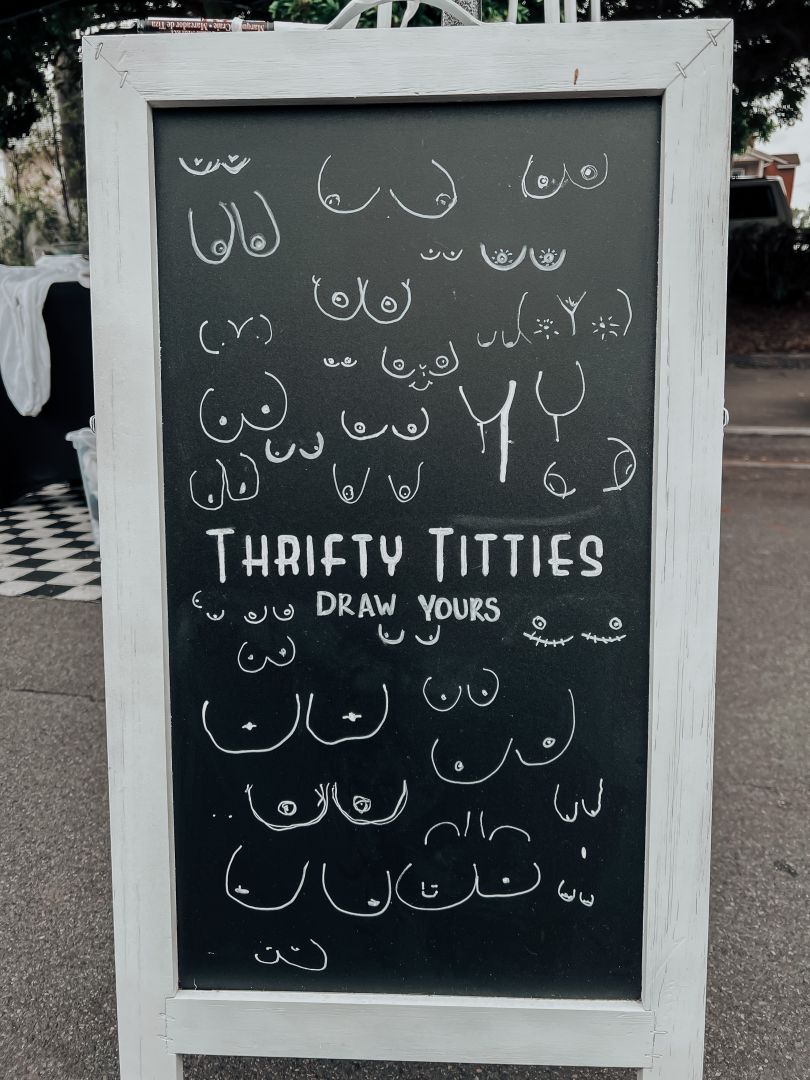 THRIFTY TITTIES
DRAW YOURS